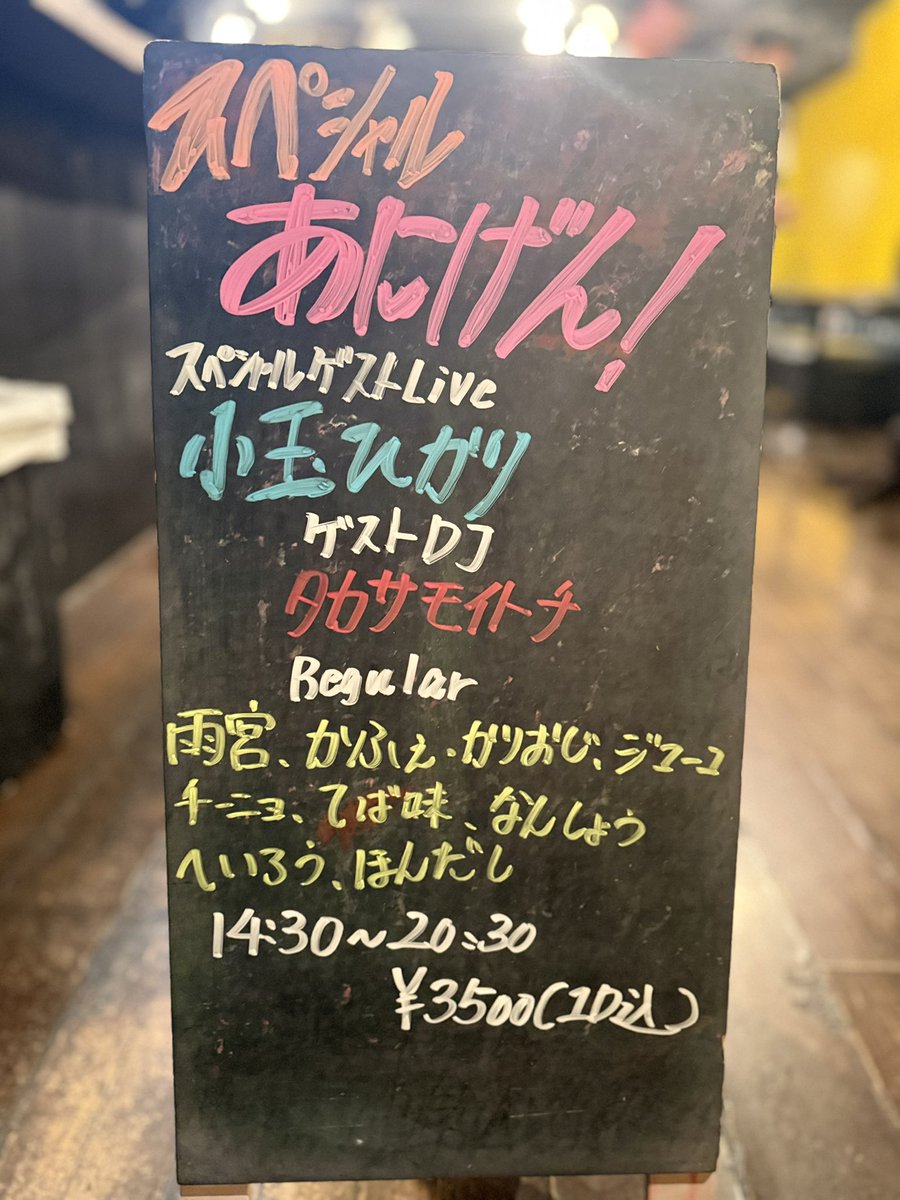 スペシャル
あにげん!
スペシャルゲストLive
小玉ひかり
ゲストDJ
タカサモイトチ
Regular
雨宮、かふぇ・がりおじ、ジューユ
チーニョ、てば味、なんしょう
へいろう、ほんだし
14:30～20:30
¥3500(1D込)